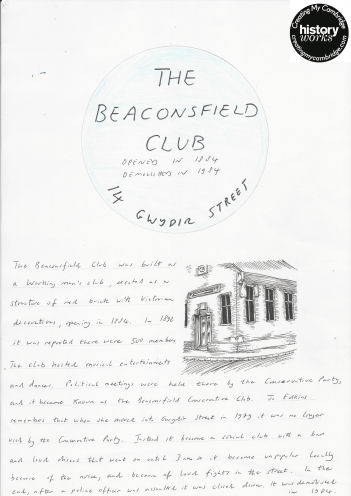 Creating My Cambridge
history
works
creatingmycambridge.com
THE
BEACONSFIELD
CLUB
OPENED IN 1884
DEMOLISHED IN 1984
14 GWYDIR STREET
The Beaconsfield Club was built as
a working man's club, created as a
structure of red brick with Victorian
decorations, opening in 1884. In 1896
it was reported there were 500 members
The club hosted musical entertainments
and dances. Political meetings were held there by the Conservative Party,
and it became known as the Beaconsfield Conservative Club. Jo Edkins
remembers that when she moved into Gwydir Street in 1979 it was no longer
used by the Conservative Party. Instead it became a social club with a bar
and loud discos that went on until 3am. It became unpopular locally
because of the noise, and because of loud fights in the street. In the
end, after a police officer was assaulted it was closed down. It was demolished
in 1984.